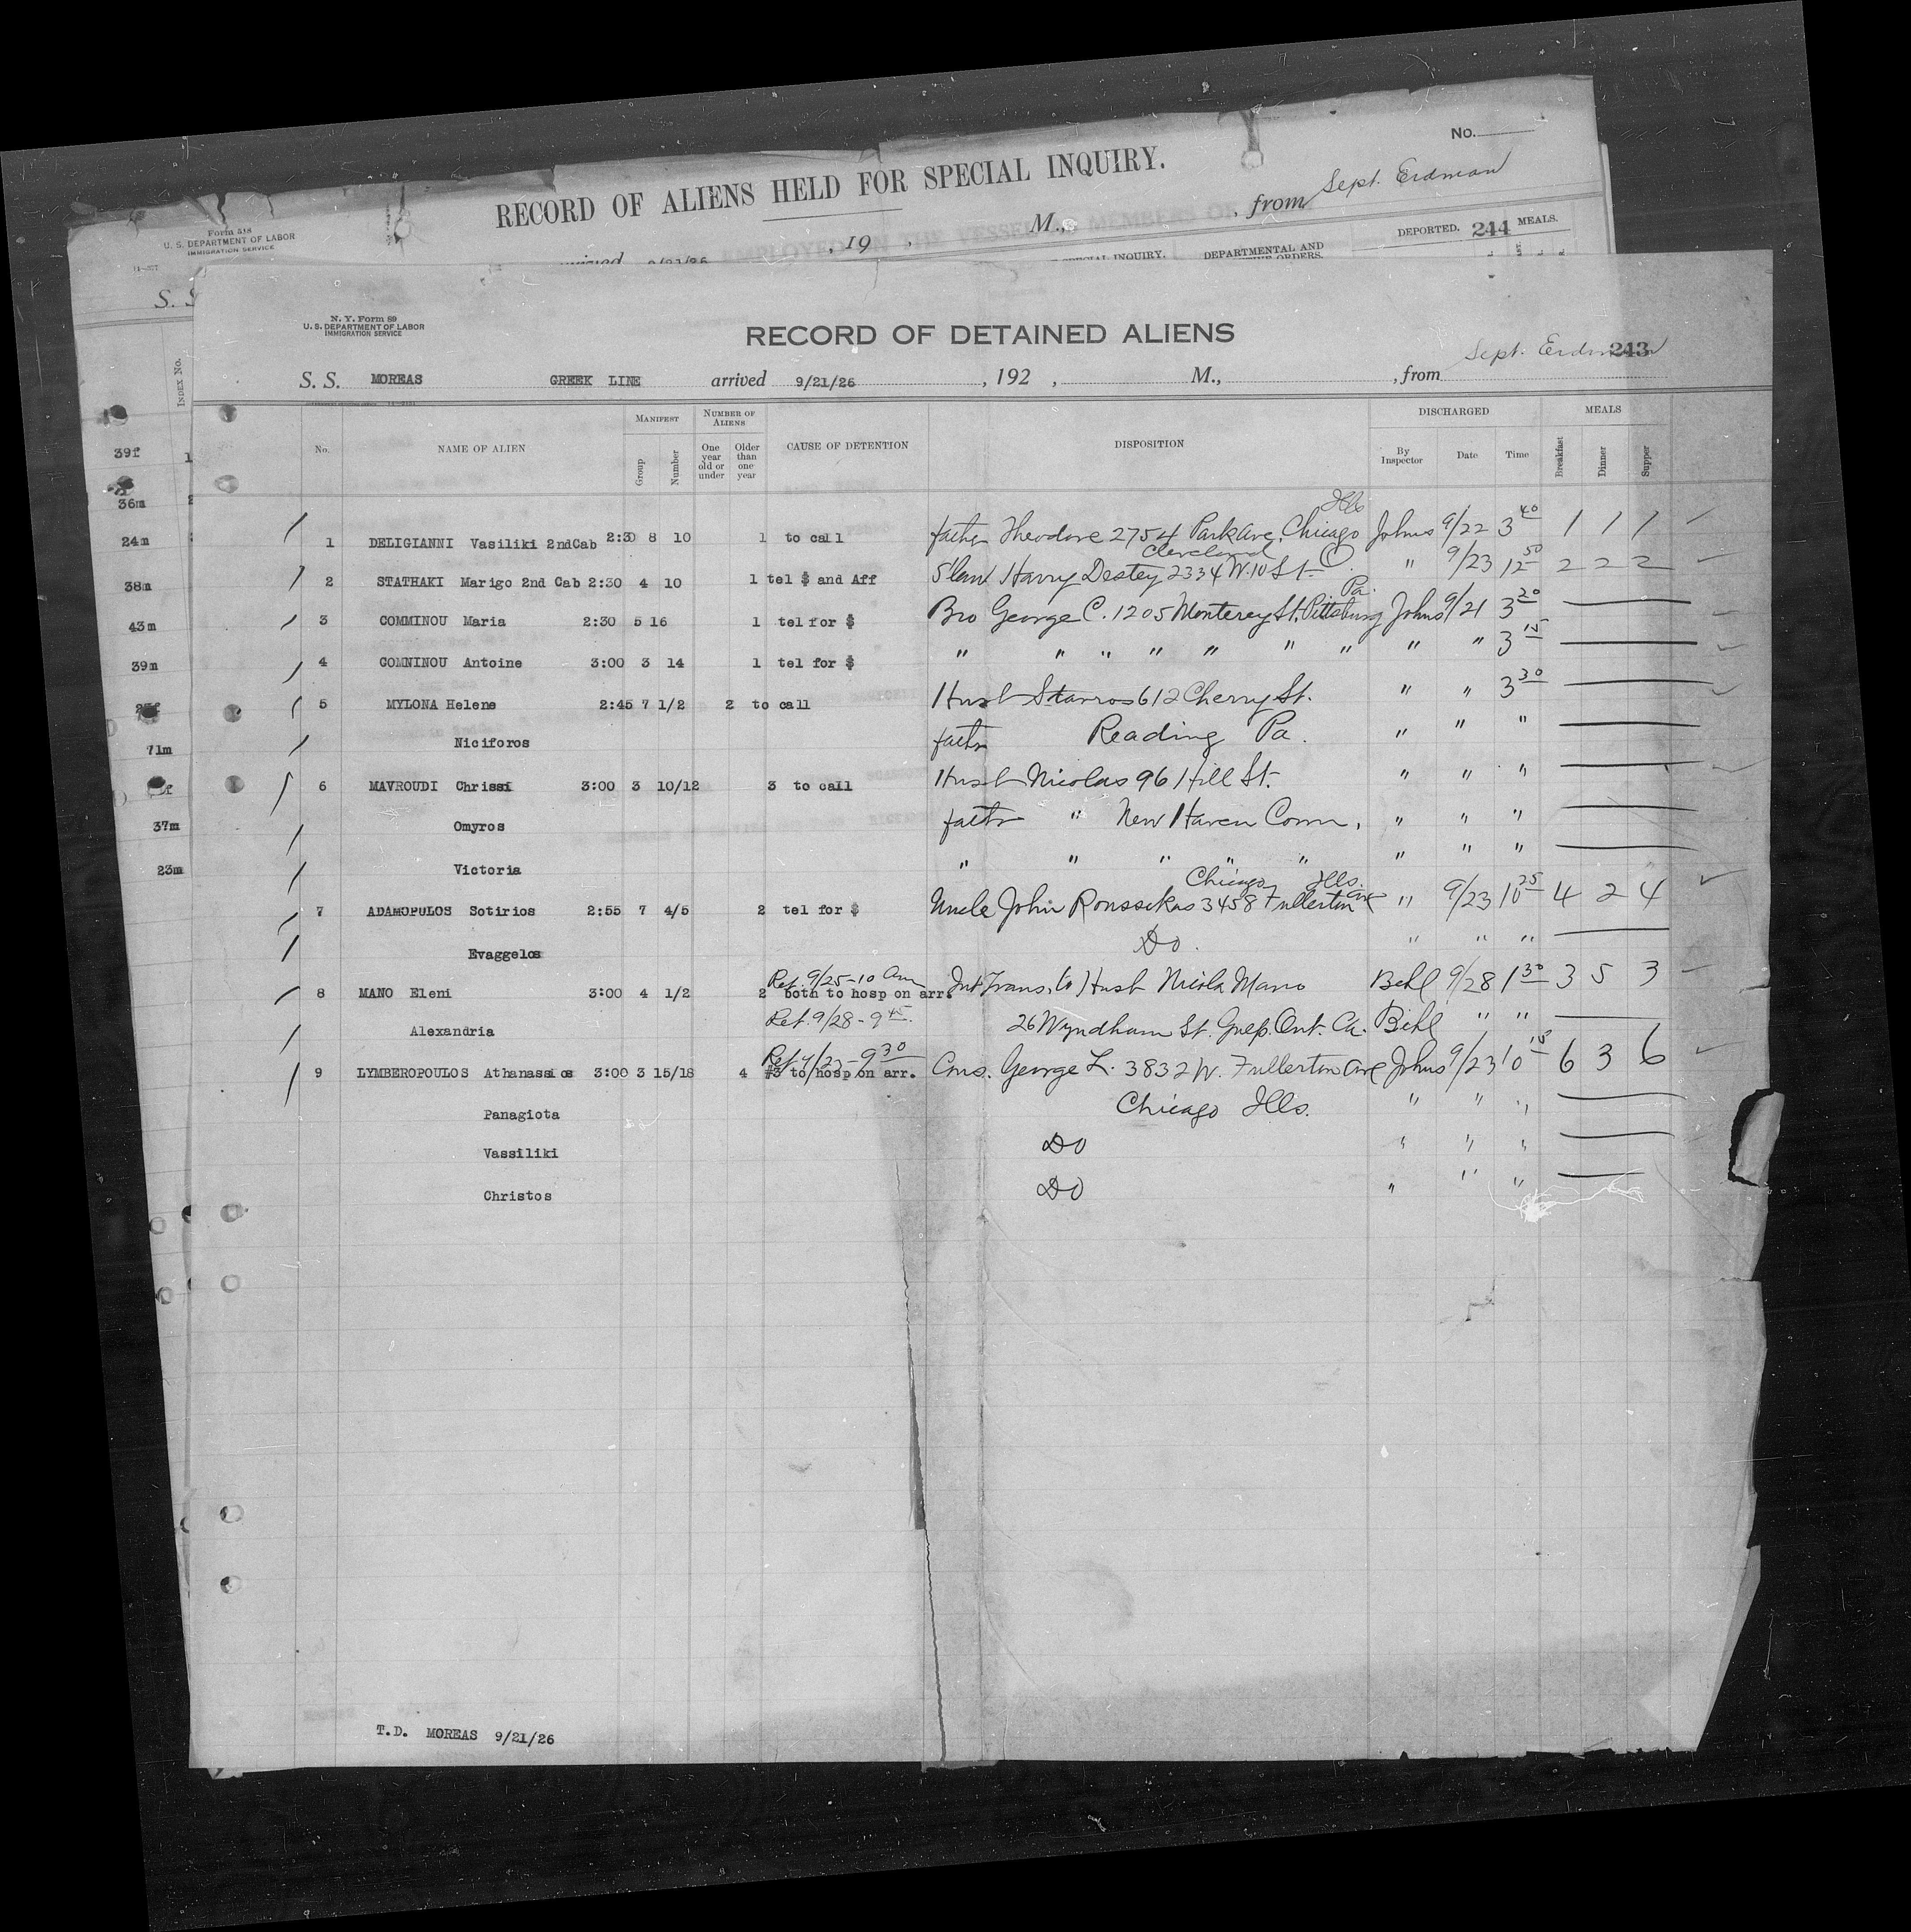 No.
RECORD OF ALIENS HELD FOR SPECIAL INQUIRY.
Sept. Erdman
Form 518
U. S. DEPARTMENT OF LABOR
IMMIGRATION SERVICE
, 19 , M., , from
DEPORTED. 244 MEALS.
9/21/26
SPECIAL INQUIRY. DEPARTMENTAL AND
S. S
INDEX No.
39f
36m
24m
38m
43m
39m
71m
37m
23m
N. Y. Form 89
U. S. DEPARTMENT OF LABOR
IMMIGRATION SERVICE
RECORD OF DETAINED ALIENS
Sept. Erdman 243
S. S. MOREAS GREEK LINE arrived 9/21/26 , 192 , M., , from
No. NAME OF ALIEN MANIFEST Group Number NUMBER OF ALIENS One year old or under Older than one year CAUSE OF DETENTION DISPOSITION DISCHARGED By Inspector Date Time MEALS Breakfast Dinner Supper
Ills
1 DELIGIANNI Vasiliki 2ndCab 2:30 8 10 1 to call father Theodore 2754 Park Ave, Chicago Johns 9/22 3 40 1 1 1
Cleveland
2 STATHAKI Marigo 2nd Cab 2:30 4 10 1 tel $ and Aff Harry Destey 2334 W. 10 St. O. " 9/23 12 50 2 2 2
Pa.
3 COMMINOU Maria 2:30 5 16 1 tel for $ Bro George C. 1205 Monterey St. Pittsburg Johns 9/21 3 20
4 COMNINOU Antoine 3:00 3 14 1 tel for $ " " " " " " " " " 3 15
5 MYLONA Helene 2:45 7 1/2 2 to call Husb Stavros 612 Cherry St. " " 3 30
Niciforos fathr Reading Pa. " " "
6 MAVROUDI Chrissi 3:00 3 10/12 3 to call Husb Nicolas 96 Hill St. " " "
Omyros fathr " New Haven Conn, " " "
Victoria " " " " " " " "
Chicago Ills.
7 ADAMOPULOS Sotirios 2:55 7 4/5 2 tel for $ Uncle John Roussikas 3458 Fullerton Ave " 9/23 10 25 4 2 4
Evaggelos Do. " " "
Ret. 9/25-10 Am
8 MANO Eleni 3:00 4 1/2 2 both to hosp on arr. Int Trans. to Husb Nicola Mano Behl 9/28 1 30 3 5 3
Alexandria Ret. 9/28-9 45 26 Wyndham St. Guep. Ont. Ca. Behl " "
Ret 9/23-9 30
9 LYMBEROPOULOS Athanassios 3:00 3 15/18 4 #3 to hosp on arr. Cous. George L. 3832 W. Fullerton Ave Johns 9/23 10 15 6 3 6
Panagiota Chicago Ills. " " "
Vassiliki Do " " "
Christos Do " " "
T.D. MOREAS 9/21/26